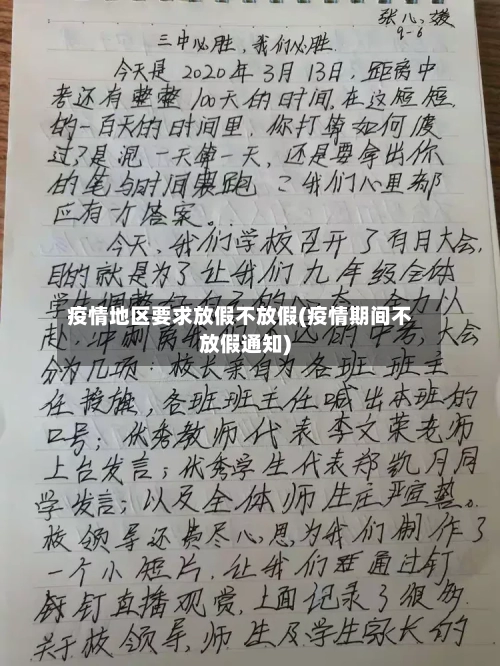 张心媛
9-6
三中必胜，我们必胜.
今天是2020年3月13日，距离中
考还有整整100天的时间，在这短短
的一百天的时间里，你打算如何度
过？是混一天算一天，还是要拿出你
的笔与时间赛跑？我们心里都
应有个答案。
今天，我们学校召开了百日大会，
目的就是为了让我们九年级全体
学生调整好自己的心态，全力以
疫情地区要求放假不放假(疫情期间不
放假通知)
赴，冲刺 的中考，大会
分为几项：校长亲自为各班班主
任授旗，各班班主任喊出本班的
口号；优秀教师代表李文荣老师
上台发言；优秀学生代表郑凯月同
学发言；以及全体师生庄严宣誓。
校领导还费尽心思为我们制作了
一个小短片，让我们通过钉
钉直播观赏，上面记录了很多
关于校领导，师生及学生家长的